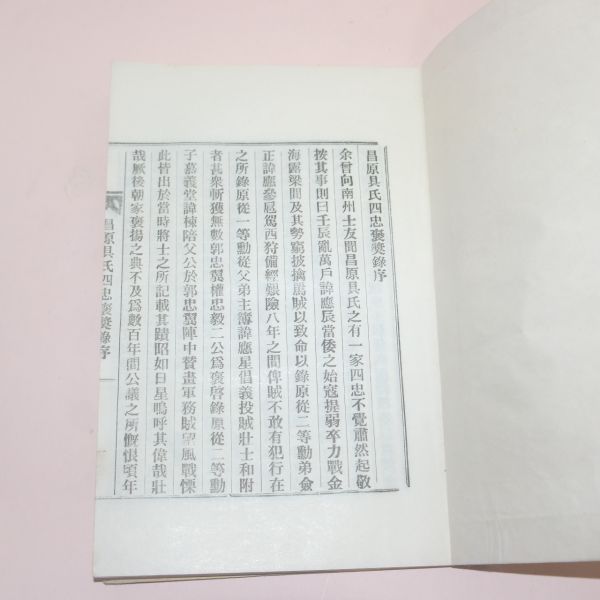 昌原具氏四忠褒奬錄序
余曾向南州士友聞昌原具氏之有一家四忠不覺肅然起敬
按其事則曰壬辰亂萬戶諱應辰當倭之始寇提弱卒力戰金
海露梁間及其勢窮披擒罵賊以致命以錄原從二等勳弟僉
正諱應參扈駕西狩備經艱險八年之間俾賊不敢有犯行在
之所錄原從一等勳從父弟主簿諱應星倡義投賊壯士和附
者甚衆斬獲無數郭忠翼權忠毅二公爲褒啓錄原從二等勳
子慕義堂諱棟陪父公於郭忠翼陣中贊畫軍務賊望風戰慄
此皆出於當時將士之所記載其蹟昭如日星嗚呼其偉哉壯
哉厥後朝家褒揚之典不及爲數百年間公議之所慨恨頃年
昌原具氏四忠褒奬錄序